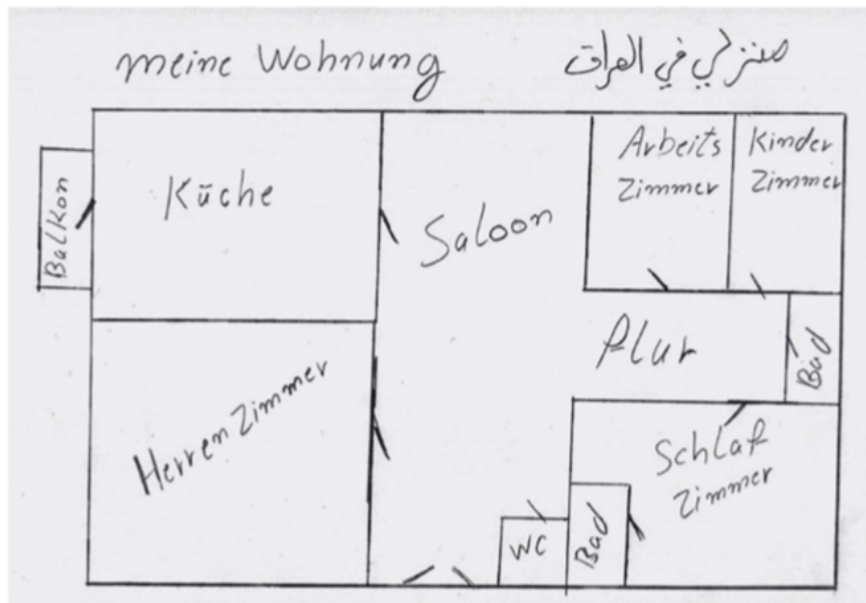 meine Wohnung
منزلي في العراق
Küche
Balkon
Saloon
Arbeits
Zimmer
Kinder
Zimmer
flur
Bad
Herren Zimmer
Schlaf
Zimmer
WC
Bad